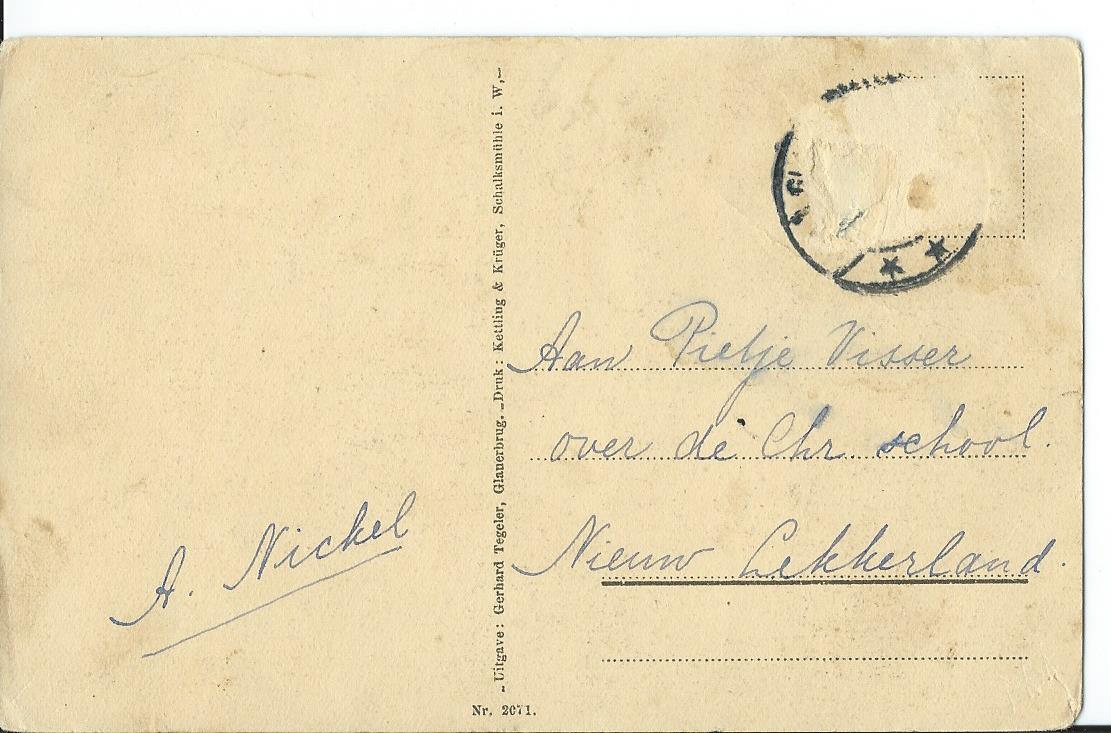 A. Nickel
Uitgave: Gerhard Tegeler, Glanerbrug. Druk: Kettling & Krüger, Schalksmühle i. W.
Nr. 2071.
Aan Pietje Visser
over de Chr. school.
Nieuw Lekkerland.